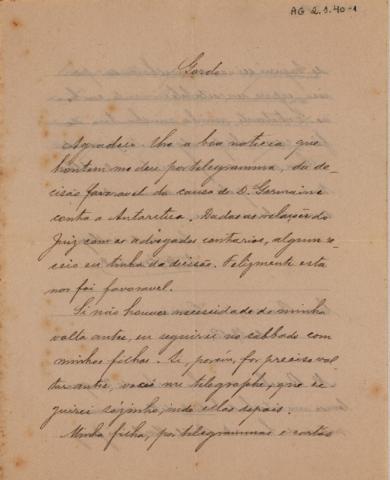 AG 2.1.40-1
Gordo
Agradeço-lhe a boa noticia que
hontem me deu por telegramma, da de-
cisão favoravel da causa de D. Germaine
contra a Antarctica. Dadas as relações do
Juiz com os advogados contrarios, algum re-
ceio eu tinha da decisão. Felizmente esta
nos foi favoravel.
Si não houver necessidade de minha
volta antes, eu seguirei no sabbado com
minhas filhas. Si, porém, for preciso vol-
tar antes, você me telegraphe, que se-
guirei sózinho, indo ellas depois.
Minha filha, por telegrammas e cartas